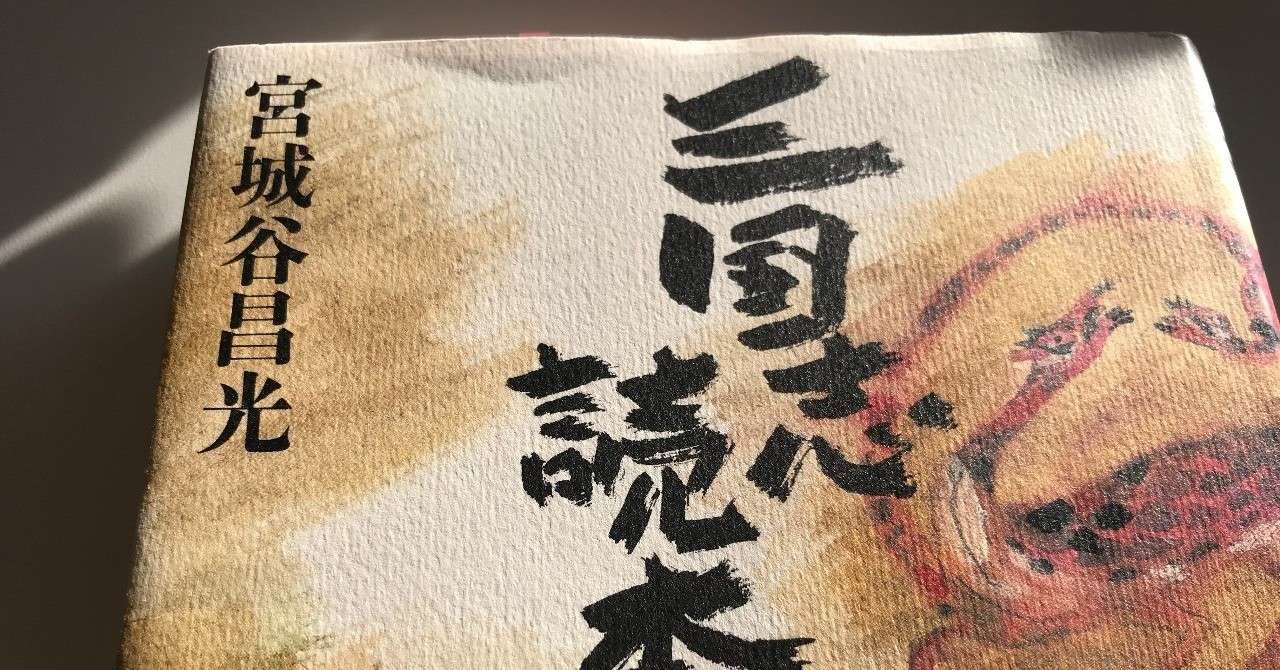 三国志
読本
宮城谷昌光